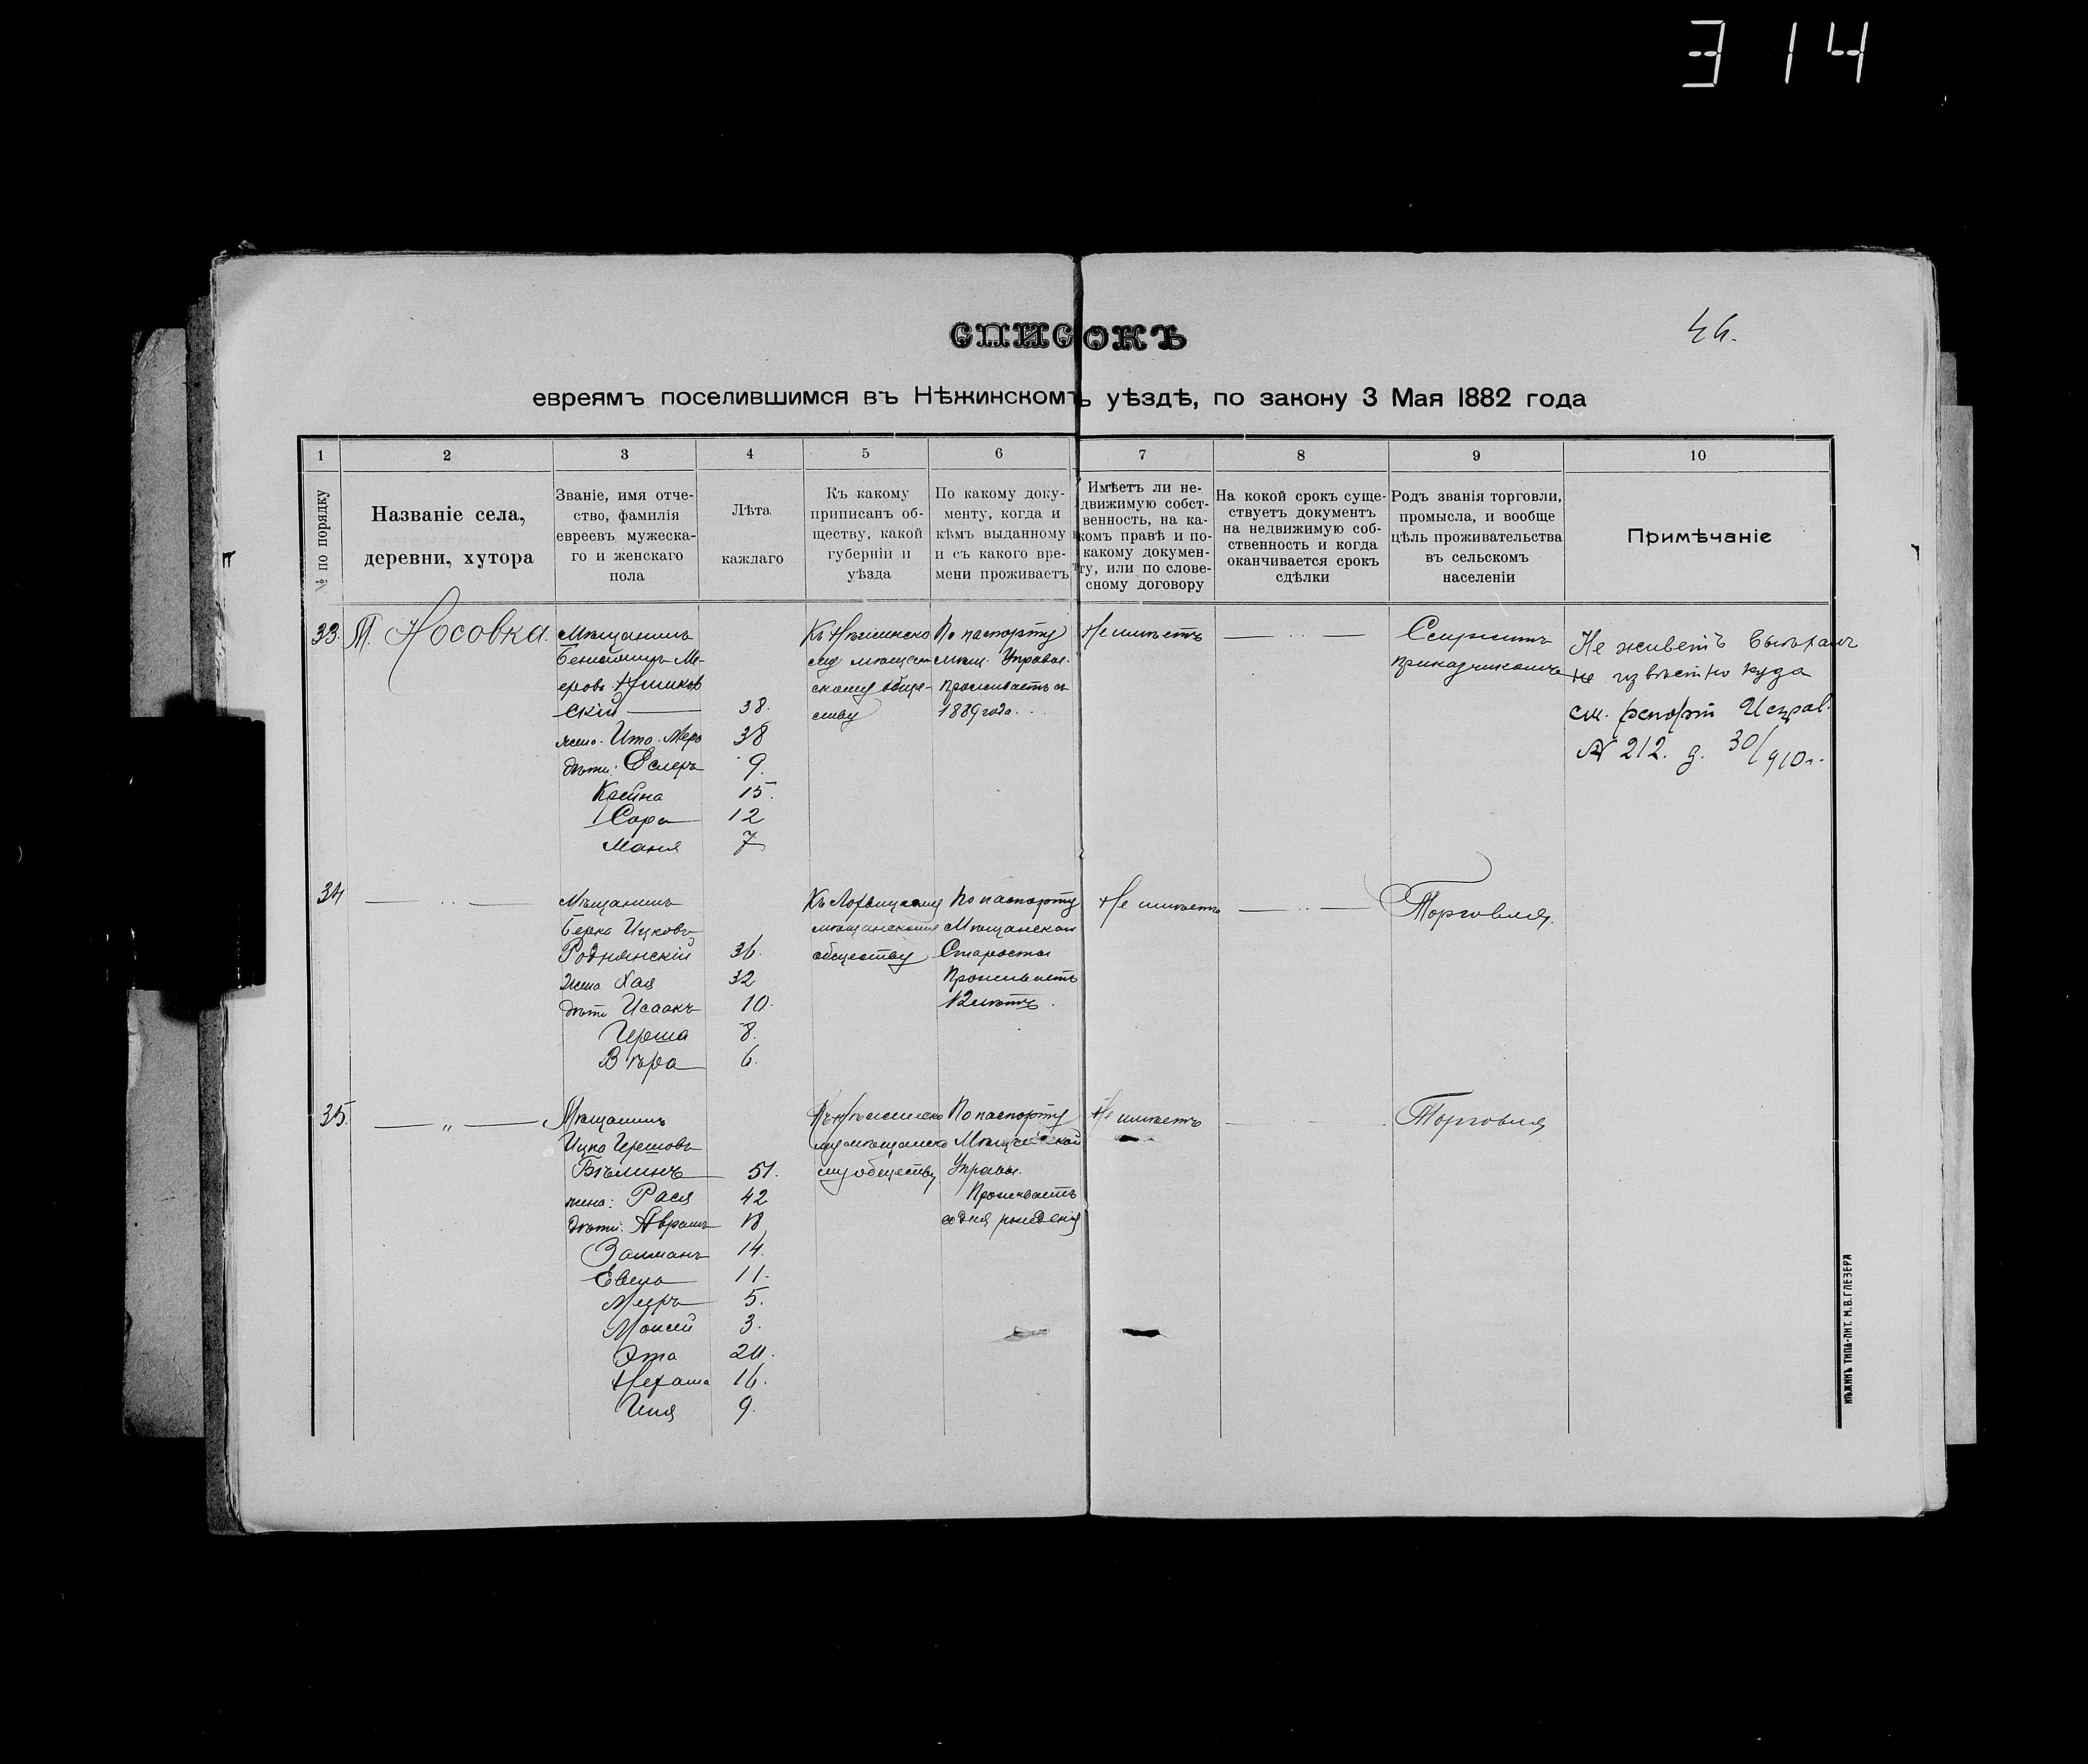 314
46.
СПИСОКЪ
евреямъ поселившимся въ Нѣжинскомъ уѣздѣ, по закону 3 Мая 1882 года
1 2 3 4 5 6 7 8 9 10
№ по порядку
Названіе села,
деревни, хутора
Званіе, имя отче-
ство, фамилія
евреевъ мужеска-
го и женскаго
пола
Лѣта
каждаго
Къ какому
приписанъ об-
ществу, какой
губерніи и
уѣзда
По какому доку-
менту, когда и
кѣмъ выданному
и съ какого вре-
мени проживаетъ
Имѣетъ ли не-
движимую собст-
венность, на ка-
комъ правѣ и по-
какому докумен-
ту, или по слове-
сному договору
На кокой срокъ суще-
ствуетъ документъ
на недвижимую соб-
ственность и когда
оканчивается срокъ
сдѣлки
Родъ званія торговли,
промысла, и вообще
цѣль проживательства
въ сельскомъ
населеніи
Примѣчаніе
33. М. Носовка
Мѣщанинъ
Ме-
еровъ
скій 38.
жена 38
дѣти: 9.
Крейна 15.
Сора 12
Маня 7
Къ Нѣжинско
му мѣщан
скому обще-
ству
По паспорту
Мѣщ. Управы.
Проживаетъ съ
1889 года.
Не имѣетъ
Служитъ
приказчикомъ
Не живетъ
не извѣстно куда
см. рапорт Исправ.
№ 212. д. 30/910 г.
34
Мѣщанинъ
Берка Ицковъ
Роднянскій 36.
жена Хая 32
дѣти Исаакъ 10.
Герша 8.
Вѣра 6.
Къ Лохвицкому
мѣщанскому
обществу
По паспорту
Мѣщанскаго
Старосты
Проживаетъ
12 лѣтъ.
Не имѣетъ
Торговля.
35.
Мѣщанинъ
Ицко Гершовъ
Бѣлинъ 51.
жена: Рася 42
дѣти: Аврамъ 18
Залманъ 14.
11.
5.
Моисей 3.
Эта 20.
Нехама 16.
9.
Къ Нѣжинско
му мѣщанско
му обществу
По паспорту
Мѣщанской
Управы.
Проживаетъ
со дня рожденія
Не имѣетъ
Торговля
НѢЖИНЪ ТИПО-ЛИТ. М. В. ГЛЕЗЕРА